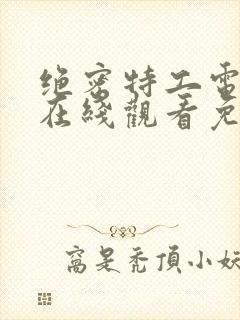 绝密特工電
在綫觀看免
窩是禿頂小妖